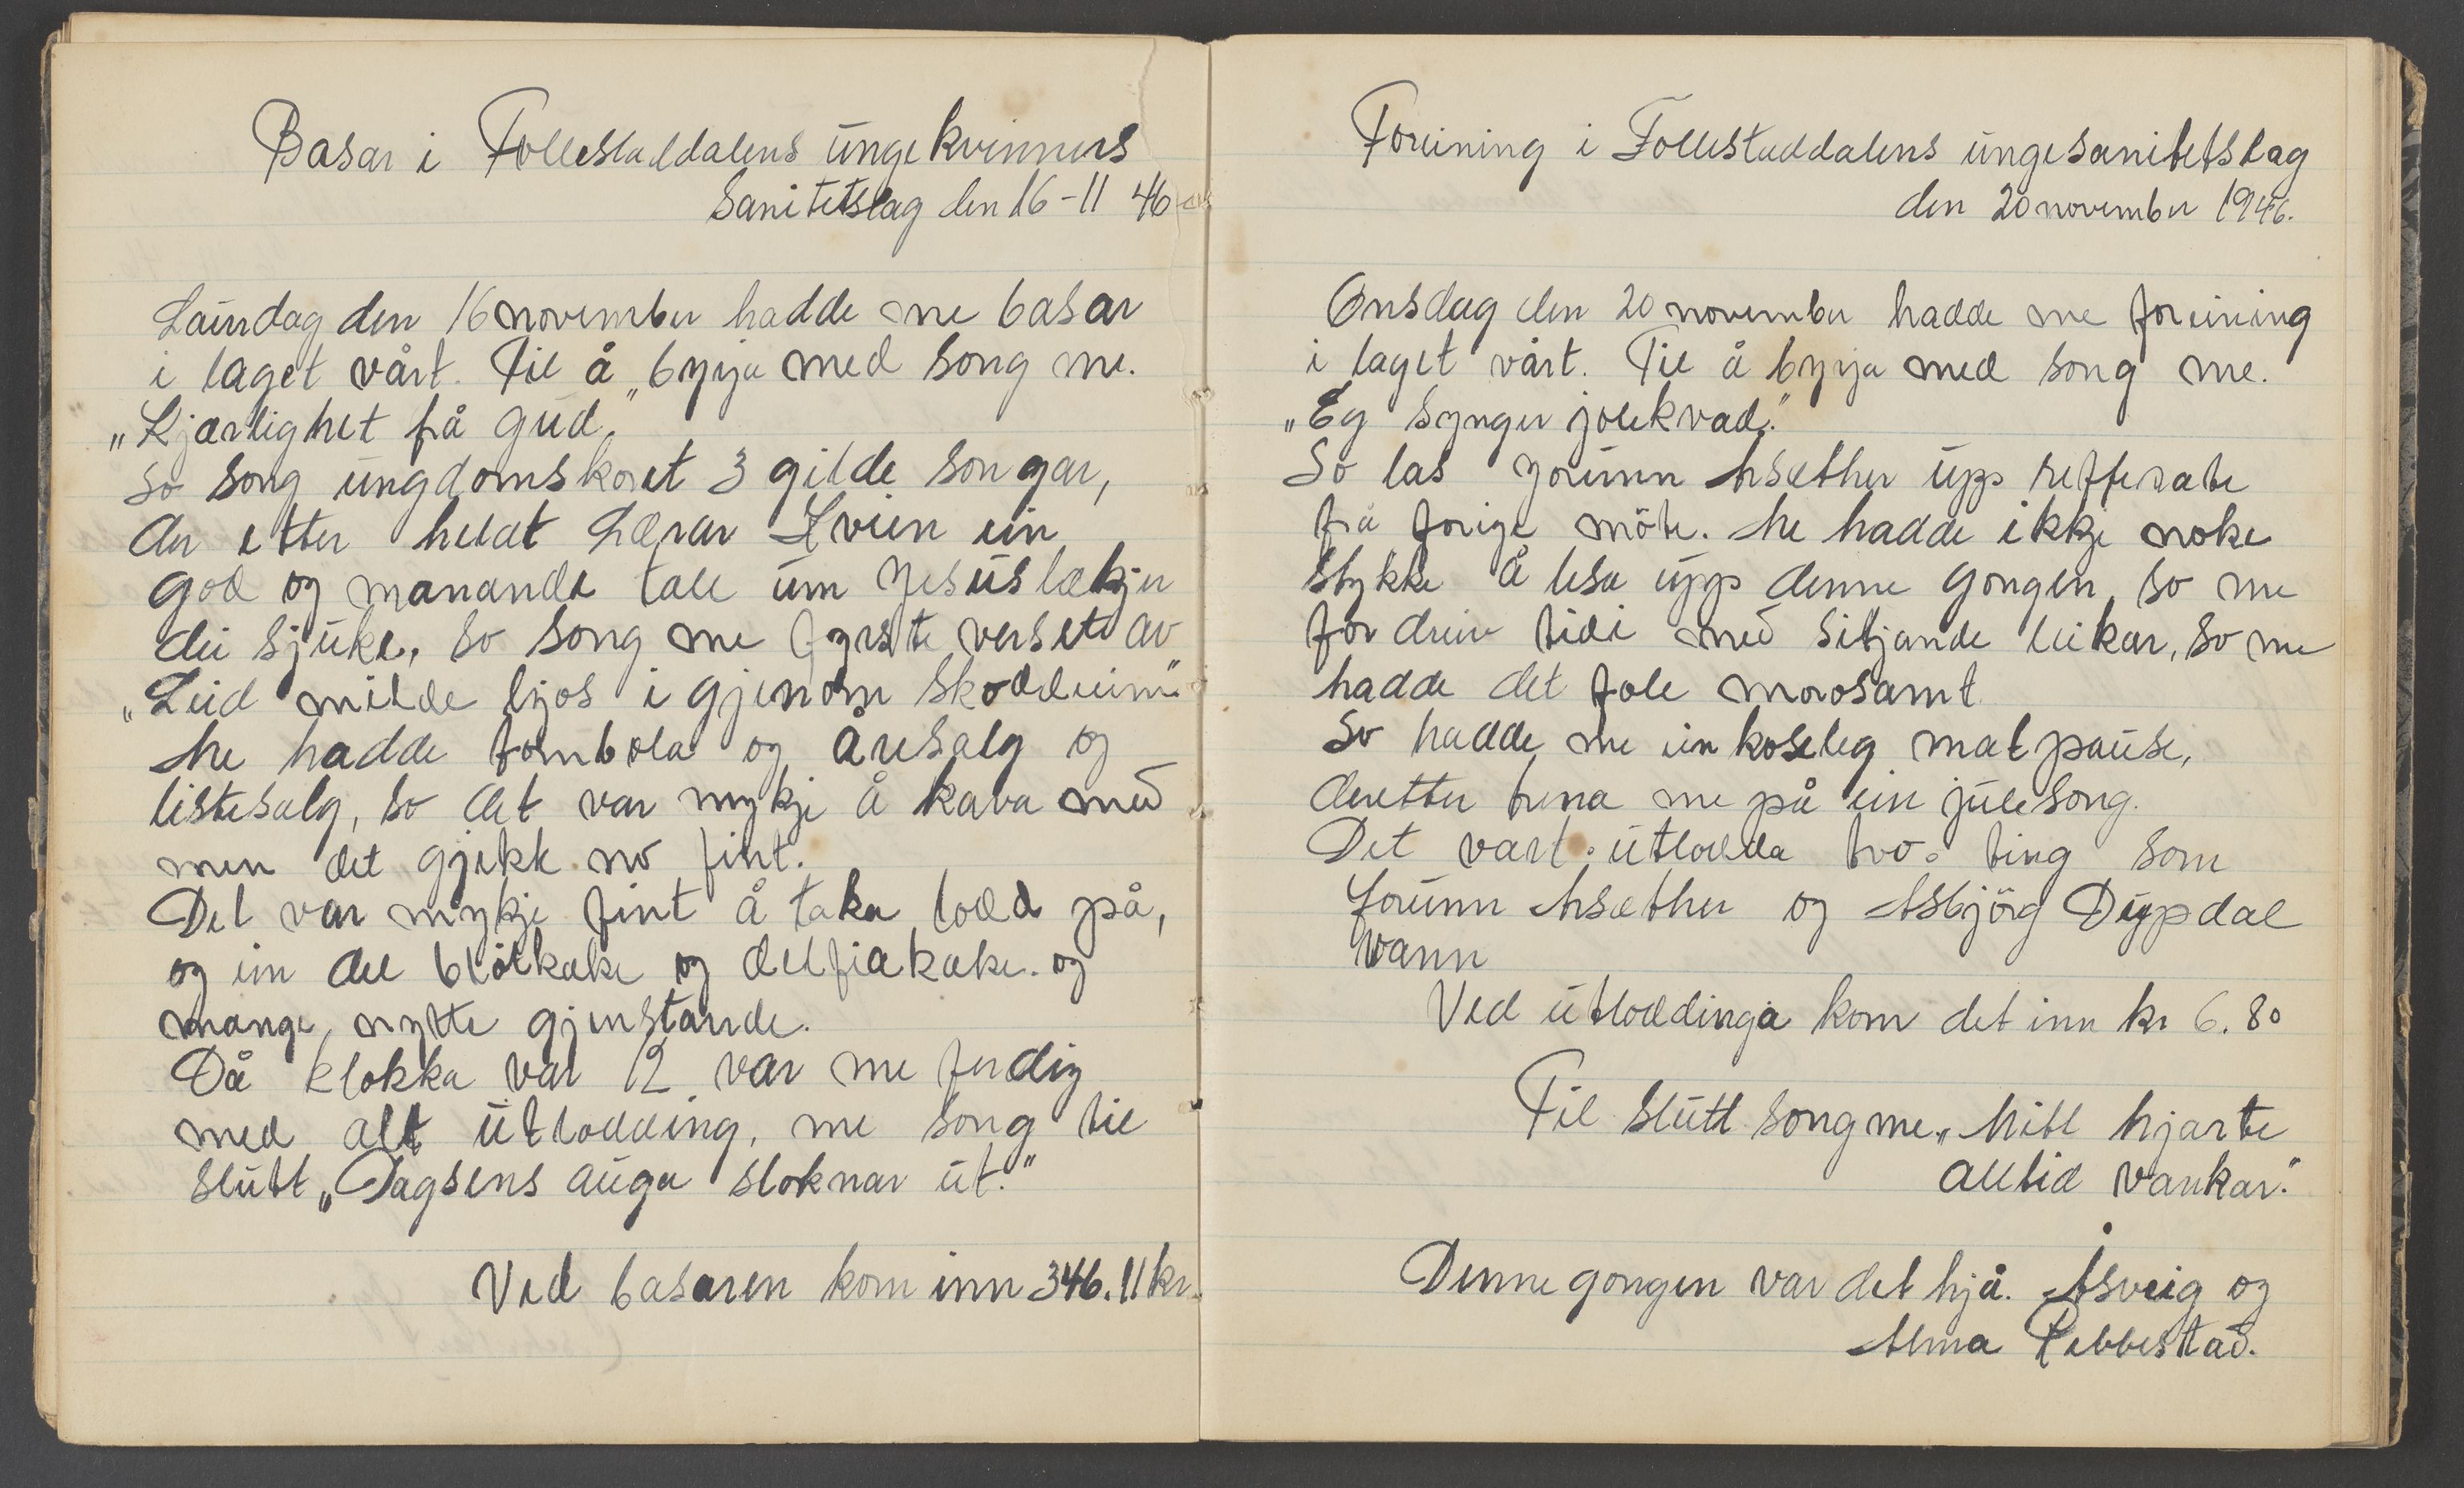 Basar i Follestaddalens unge kvinners
Sanitetslag den 16-11 46
Laurdag den 16 november hadde me basar
i laget vårt. Til å byrja med song me.
„Kjærlighet få Gud."
So song ungdomskoret 3 gilde songar,
der etter heldt Lærar Kvien ein
god og manande tale um Jesus lækjer
dei sjuke, so song me fyrste verset av
„Leid milde ljos i gjenom skoddeim"
Me hadde tombola og åresalg og
listesalg, so det var mykje å kava med
men det gjekk no fint.
Det var mykje fint å taka lodd på,
og ein del blötkake og delfiakake. og
mange nytte gjenstande.
Då klokka var 12 var me ferdig
med alt utlodding, me song til
slutt „Dagsens auga sloknar ut."
Ved basaren kom inn 346.11 kr.
Foreining i Follestaddalens ungesanitetslag
den 20 november 1946.
Onsdag den 20 november hadde me foreining
i laget vårt. Til å byrja med song me.
„Eg synger jolekvad."
So las Jorunn Aasæther upp refferate
frå forige möte. Me hadde ikkje noke
stykke å lesa upp denne gongen, so me
for dreiv tidi med sitjande leikar, so me
hadde det fole morosamt
So hadde me ein koseleg matpause,
deretter trena me på ein julesong.
Det vart utlodda tvo ting som
Jorunn Aasæther og Asbjörg Dypdal
vann
Ved utloddinga kom det inn kr 6.80
Til slutt song me „Mitt hjarte
alltid vankar."
Denne gongen var det hjå. Åsveig og
Alma Rebbestad.